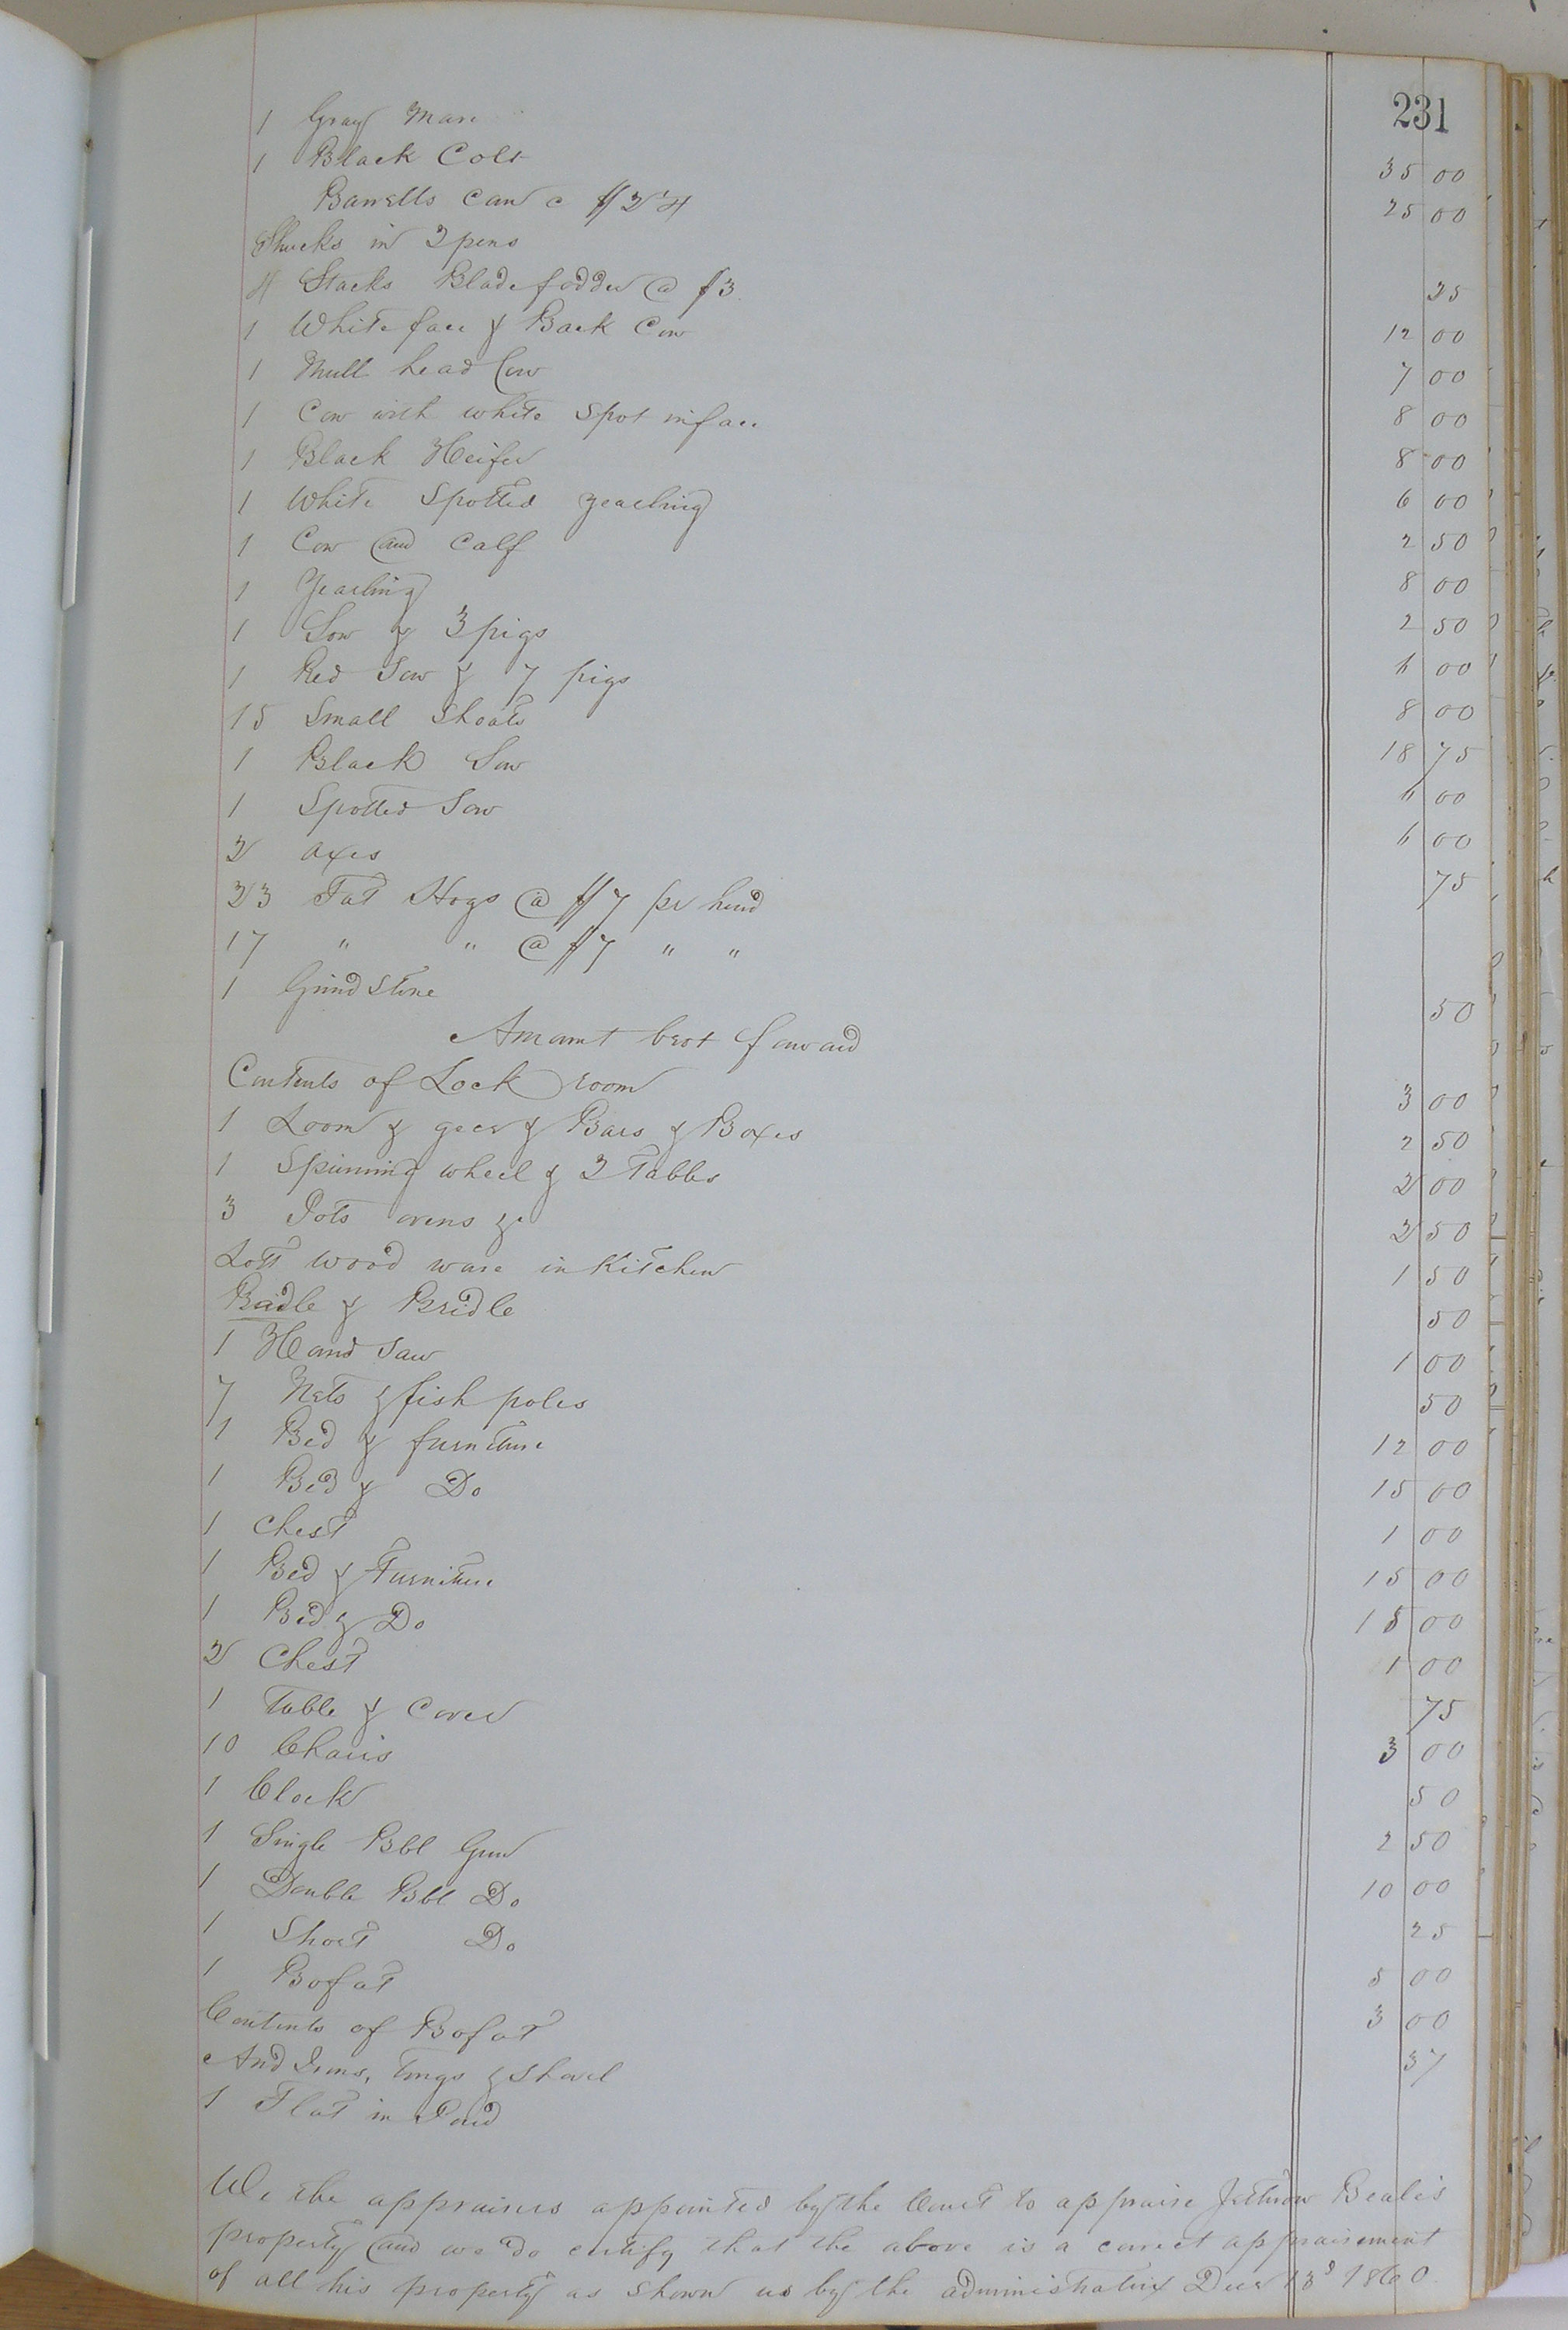 231
1 Gray Mare 35 00
1 Black Colt 25 00
Barrells Corn @ $2 4
Shucks in 2 pens 25
4 Stacks Blade fodder @ $3 12 00
1 White face & Back Cow 7 00
1 Mull head Cow 8 00
1 Cow with white Spot in face 8 00
1 Black Heifer 6 00
1 White Spotted yearling 2 50
1 Cow and Calf 8 00
1 Yearling 2 50
1 Sow & 3 pigs 6 00
1 Red Sow & 7 pigs 8 00
15 Small Shoats 18 75
1 Black Sow 6 00
1 Spotted Sow 6 00
2 axes 75
23 Fat Hogs @ $7 pr head
17 " " @ $7 " "
1 Grind Stone 50
Amount brot forward
Contents of Lock room 3 00
1 Loom & geer & Bars & Boxes 2 50
1 Spinning wheel & 2 Tabbs 2 00
3 Pots ovens &c 2 50
Lott wood ware in Kitchen 1 50
Badle & Bridle 50
1 Hand Saw 1 00
7 Nets & fish poles 50
1 Bed & furniture 12 00
1 Bed & Do 15 00
1 Chest 1 00
1 Bed & Furniture 15 00
1 Bed & Do 15 00
2 Chest 1 00
1 Table & Cover 75
10 Chairs 3 00
1 Clock 50
1 Single Bbl Gun 2 50
1 Double Bbl Do 10 00
1 Short Do 25
1 Bofat 5 00
Contents of Bofat 3 00
And Irons, Tongs & Shovel 37
1 Flat in Pond
We the appraisers appointed by the Court to appraise Jethrow Beale's
property and we do certify that the above is a correct appraisement
of all his property as shown us by the administratrix Decr 13d 1860